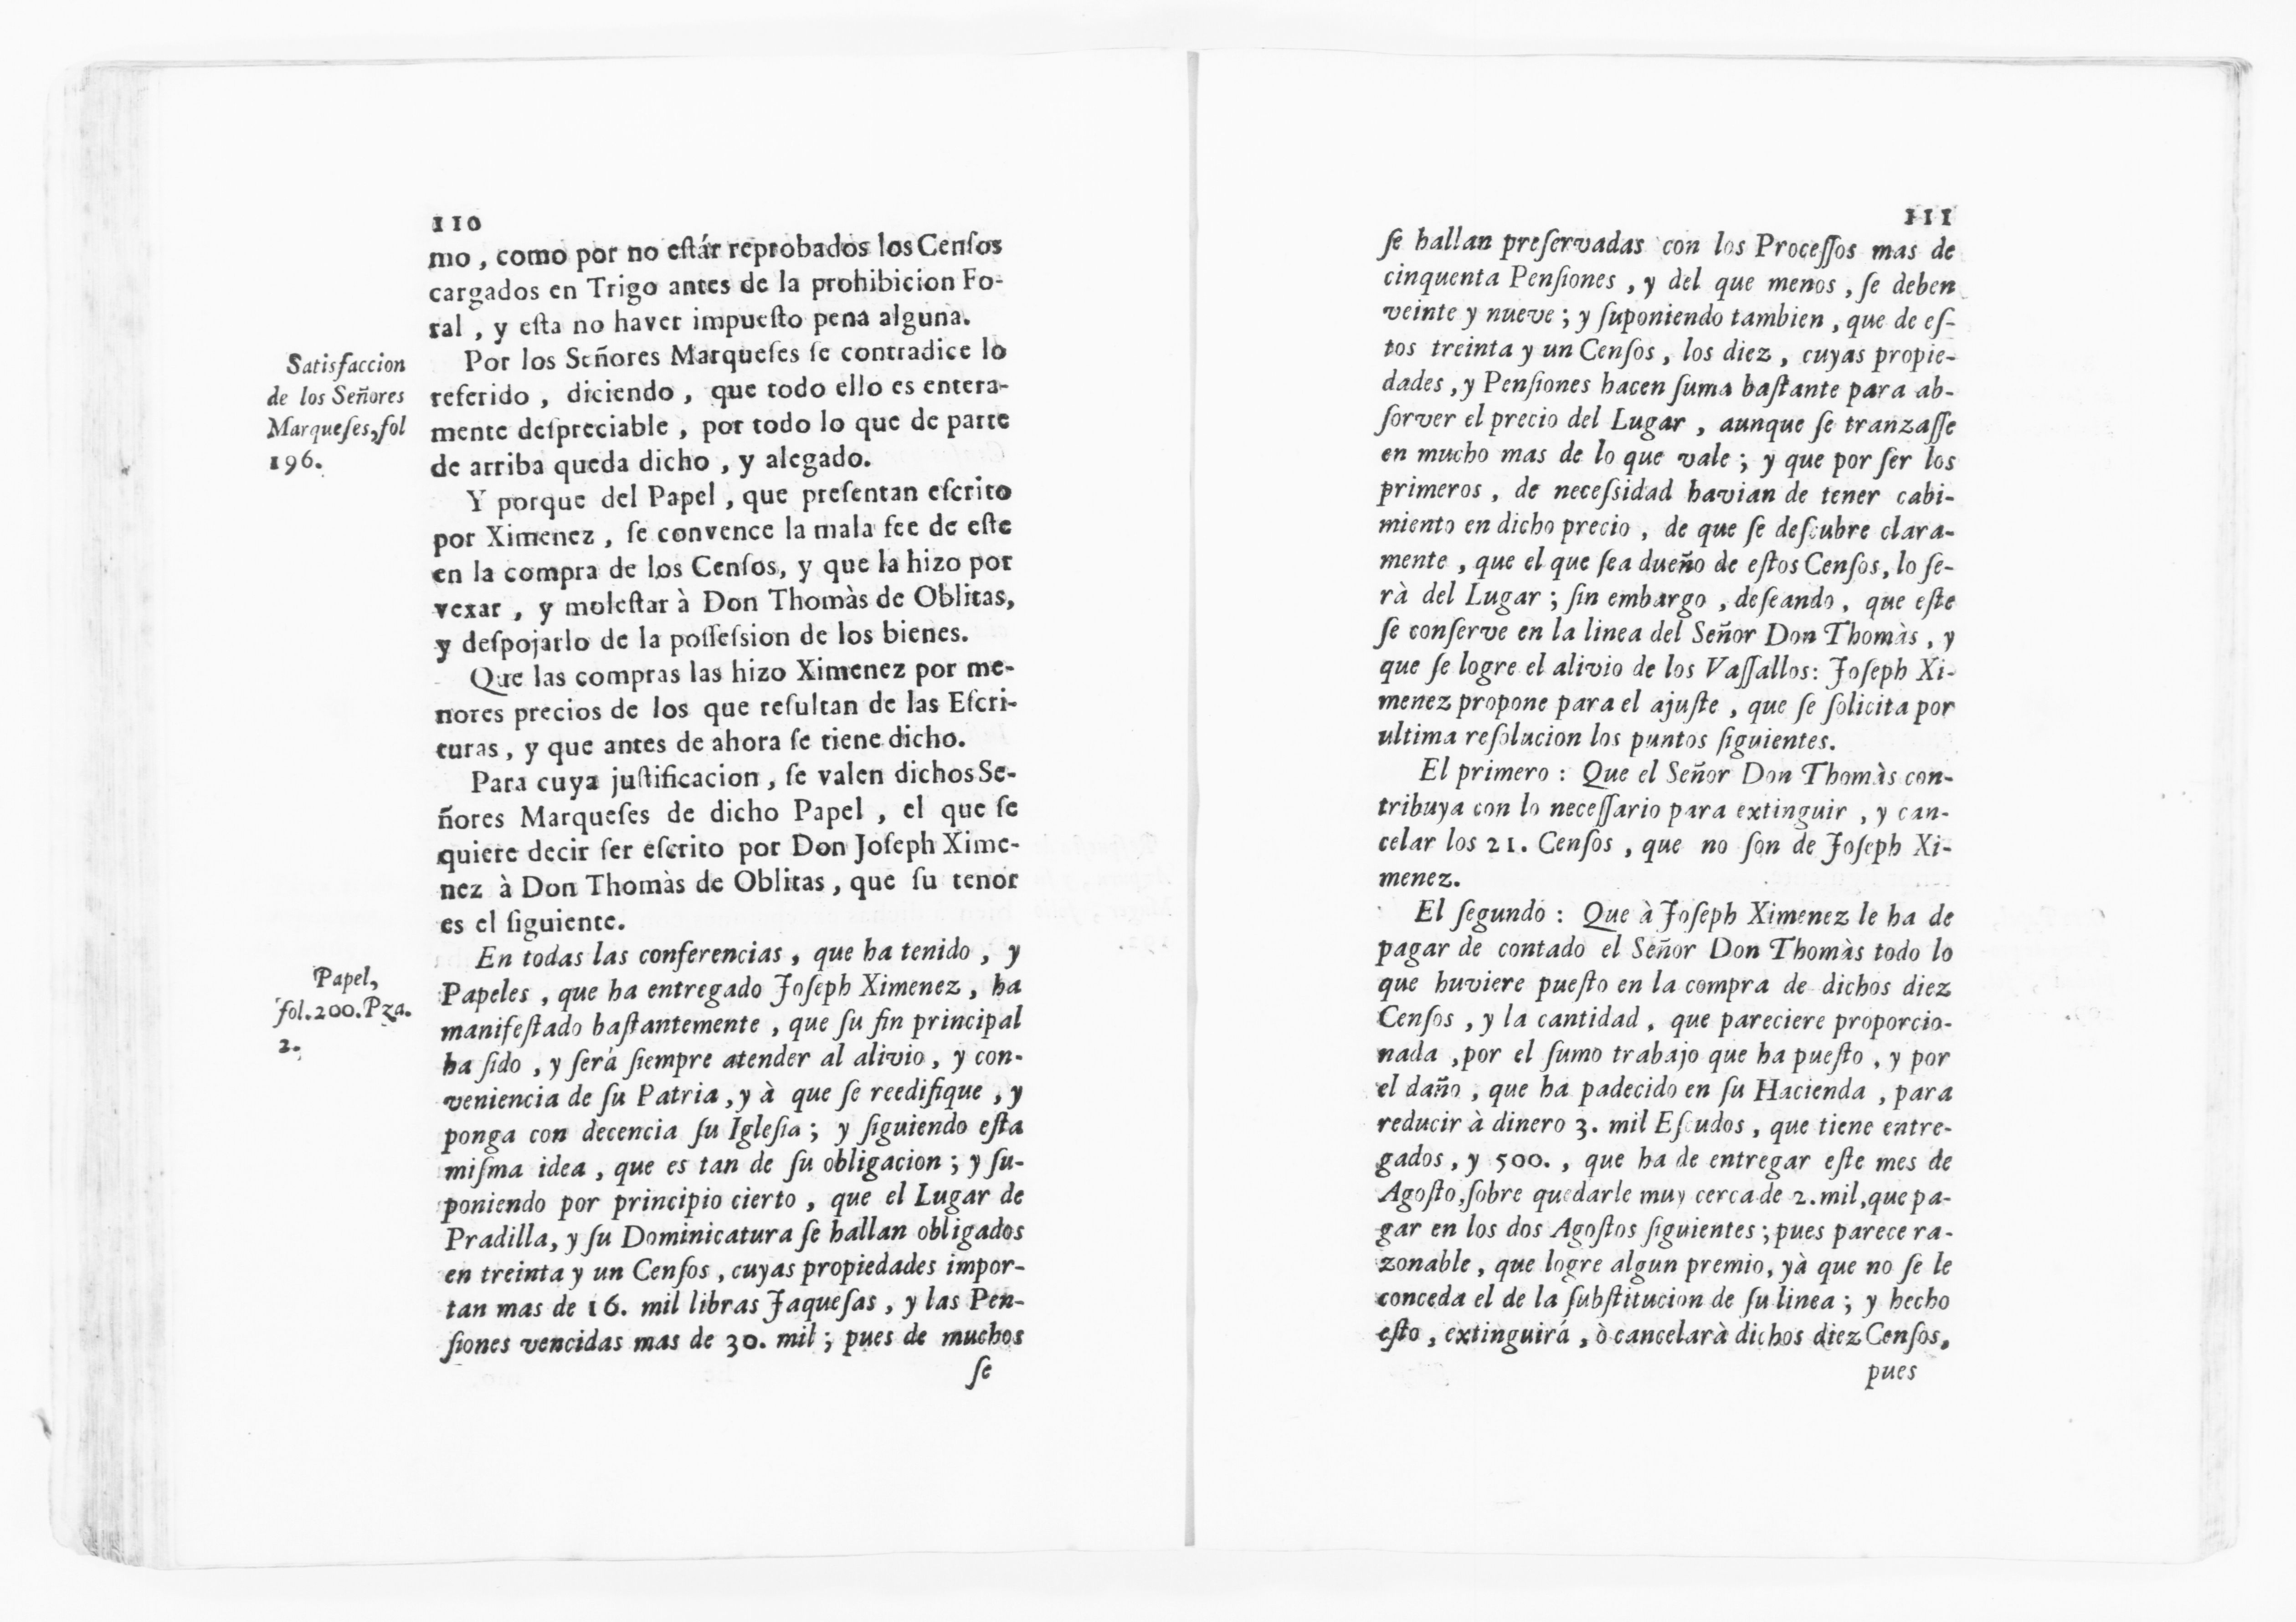 110
mo , como por no eſtár reprobados los Cenſos
cargados en Trigo antes de la prohibicion Fo-
ral , y eſta no haver impueſto pena alguna.
Satisfaccion
de los Señores
Marqueſes, fol
196.
Por los Señores Marqueſes ſe contradice lo
referido , diciendo , que todo ello es entera-
mente deſpreciable , por todo lo que de parte
de arriba queda dicho , y alegado.
Y porque del Papel , que preſentan eſcrito
por Ximenez , ſe convence la mala fee de eſte
en la compra de los Cenſos, y que la hizo por
vexar , y moleſtar à Don Thomàs de Oblitas,
y deſpojarlo de la poſſeſsion de los bienes.
Que las compras las hizo Ximenez por me-
nores precios de los que reſultan de las Eſcri-
turas , y que antes de ahora ſe tiene dicho.
Para cuya juſtificacion , ſe valen dichos Se-
ñores Marqueſes de dicho Papel , el que ſe
quiere decir ſer eſcrito por Don Joſeph Xime-
nez à Don Thomàs de Oblitas , que ſu tenor
es el ſiguiente.
Papel,
fol.200.Pza.
2.
En todas las conferencias , que ha tenido , y
Papeles , que ha entregado Joſeph Ximenez , ha
manifeſtado baſtantemente , que ſu fin principal
ha ſido , y ſerà ſiempre atender al alivio , y con-
veniencia de ſu Patria , y à que ſe reedifique , y
ponga con decencia ſu Igleſia ; y ſiguiendo eſta
miſma idea , que es tan de ſu obligacion ; y ſu-
poniendo por principio cierto , que el Lugar de
Pradilla, y ſu Dominicatura ſe hallan obligados
en treinta y un Cenſos , cuyas propiedades impor-
tan mas de 16. mil libras Jaqueſas , y las Pen-
ſiones vencidas mas de 30. mil ; pues de muchos
ſe
111
ſe hallan preſervadas con los Proceſſos mas de
cinquenta Penſiones , y del que menos , ſe deben
veinte y nueve ; y ſuponiendo tambien , que de eſ-
tos treinta y un Cenſos , los diez , cuyas propie-
dades , y Penſiones hacen ſuma baſtante para ab-
ſorver el precio del Lugar , aunque ſe tranzaſſe
en mucho mas de lo que vale ; y que por ſer los
primeros , de neceſsidad havian de tener cabi-
miento en dicho precio , de que ſe deſcubre clara-
mente , que el que ſea dueño de eſtos Cenſos, lo ſe-
rà del Lugar ; ſin embargo , deſeando , que eſte
ſe conſerve en la linea del Señor Don Thomàs , y
que ſe logre el alivio de los Vaſſallos: Joſeph Xi-
menez propone para el ajuſte , que ſe ſolicita por
ultima reſolucion los puntos ſiguientes.
El primero : Que el Señor Don Thomàs con-
tribuya con lo neceſſario para extinguir , y can-
celar los 21. Cenſos , que no ſon de Joſeph Xi-
menez.
El ſegundo : Que à Joſeph Ximenez le ha de
pagar de contado el Señor Don Thomàs todo lo
que huviere pueſto en la compra de dichos diez
Cenſos , y la cantidad , que pareciere proporcio-
nada , por el ſumo trabajo que ha pueſto , y por
el daño , que ha padecido en ſu Hacienda , para
reducir à dinero 3. mil Eſcudos , que tiene entre-
gados , y 500. , que ha de entregar eſte mes de
Agoſto, ſobre quedarle muy cerca de 2. mil, que pa-
gar en los dos Agoſtos ſiguientes ; pues parece ra-
zonable , que logre algun premio, yà que no ſe le
conceda el de la ſubſtitucion de ſu linea ; y hecho
eſto , extinguirá , ò cancelarà dichos diez Cenſos,
pues